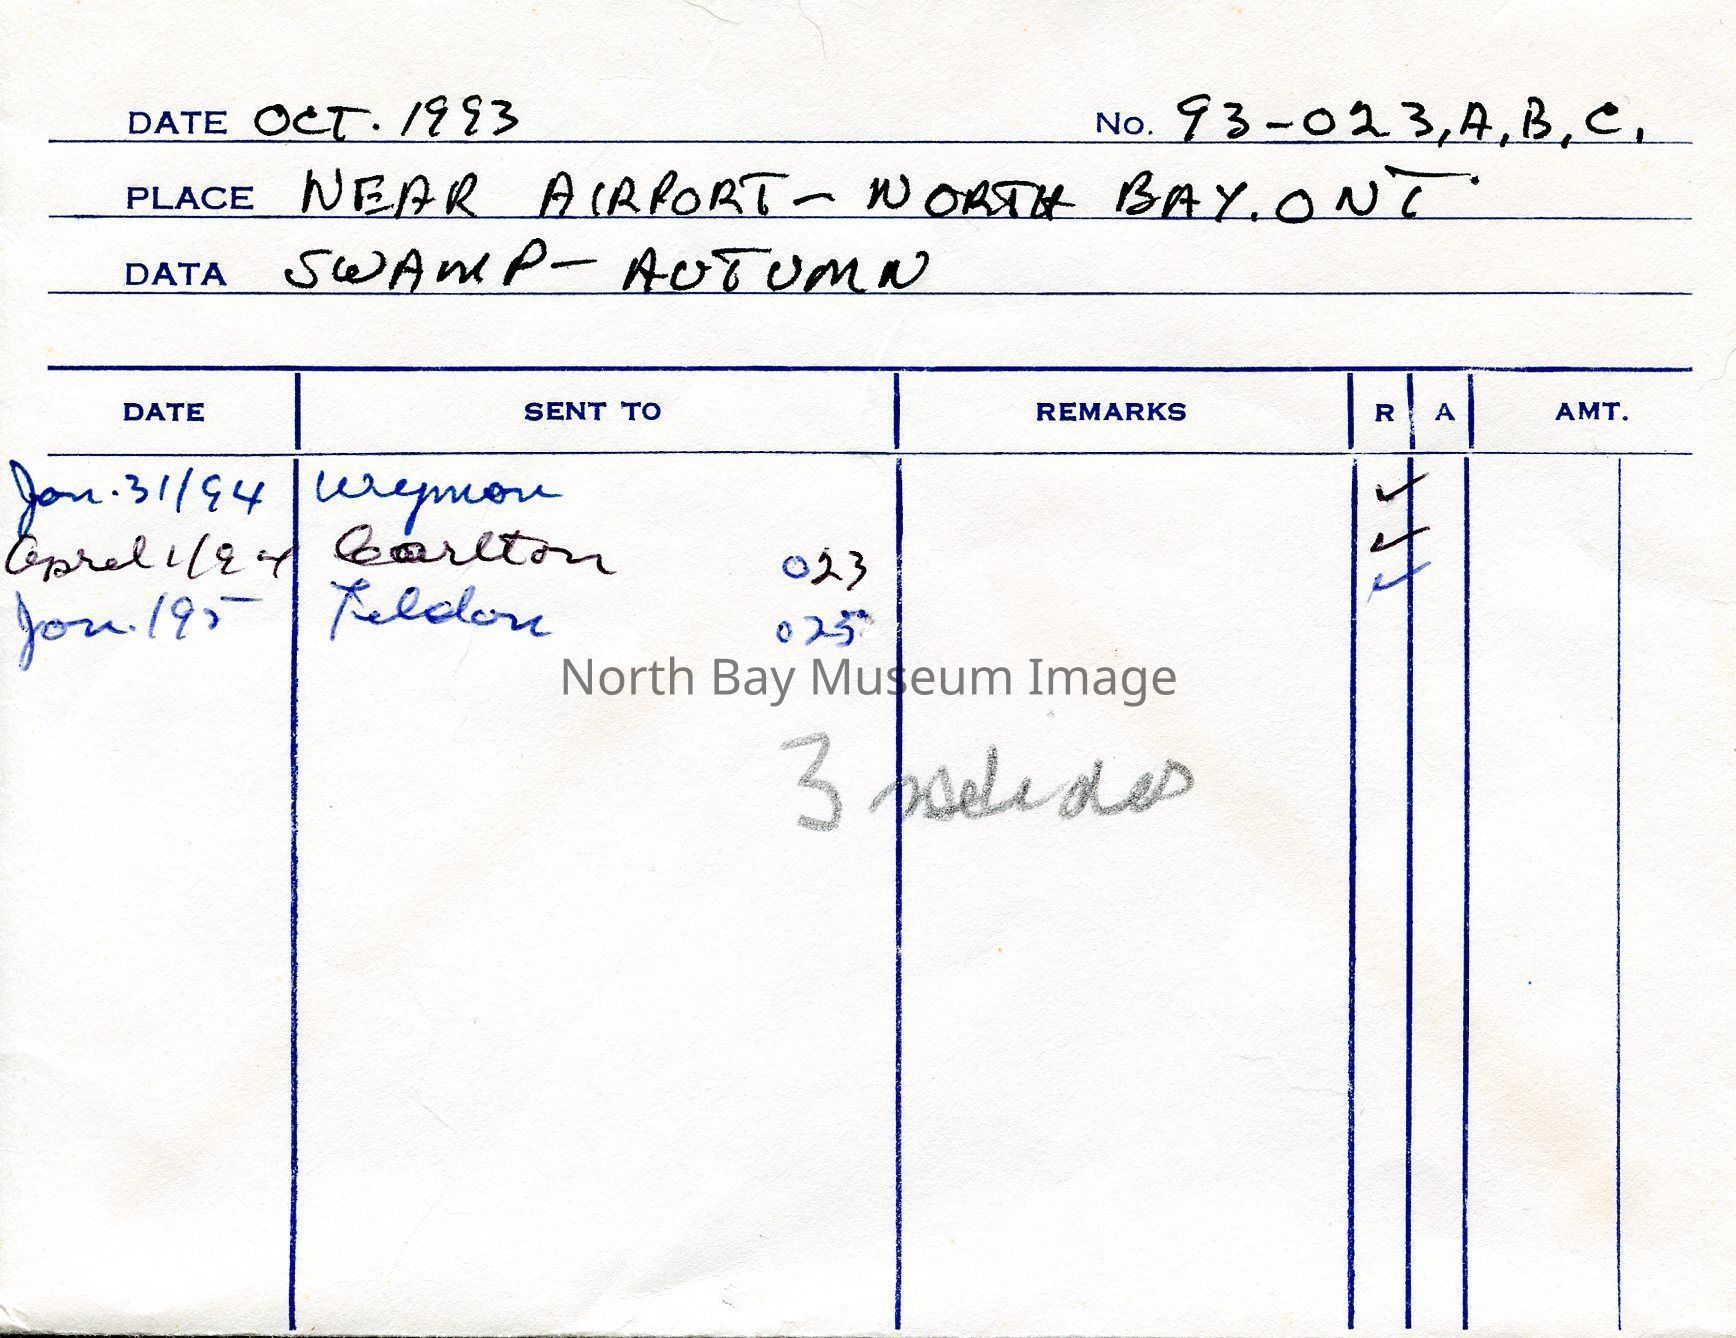 DATE OCT. 1993 No. 93-023, A, B, C,
PLACE NEAR AIRPORT - NORTH BAY. ONT.
DATA SWAMP - AUTUMN
DATE SENT TO REMARKS R A AMT.
Jan. 31/94 Wymon ✓
April 1/94 Carlton 023 ✓
Jan. /95 Feldon 025 ✓
North Bay Museum Image
3